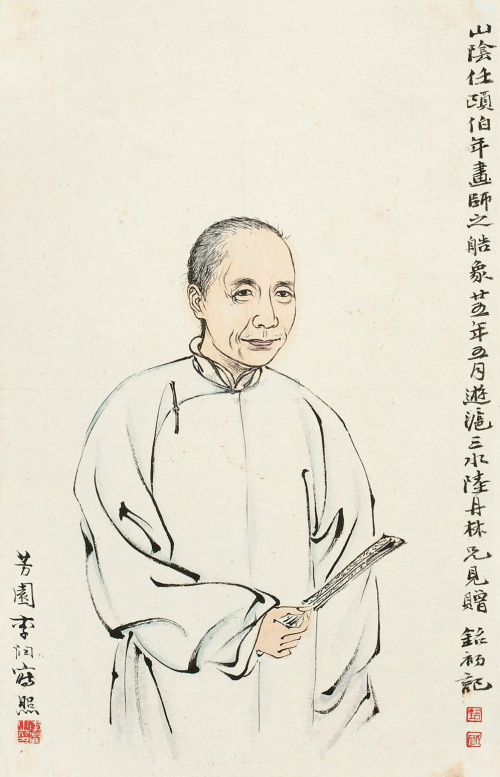 山陰任頤伯年畫師之艁象廿五年五月遊滬三水陸丹林兄見贈 銘初記
芳園李寫照